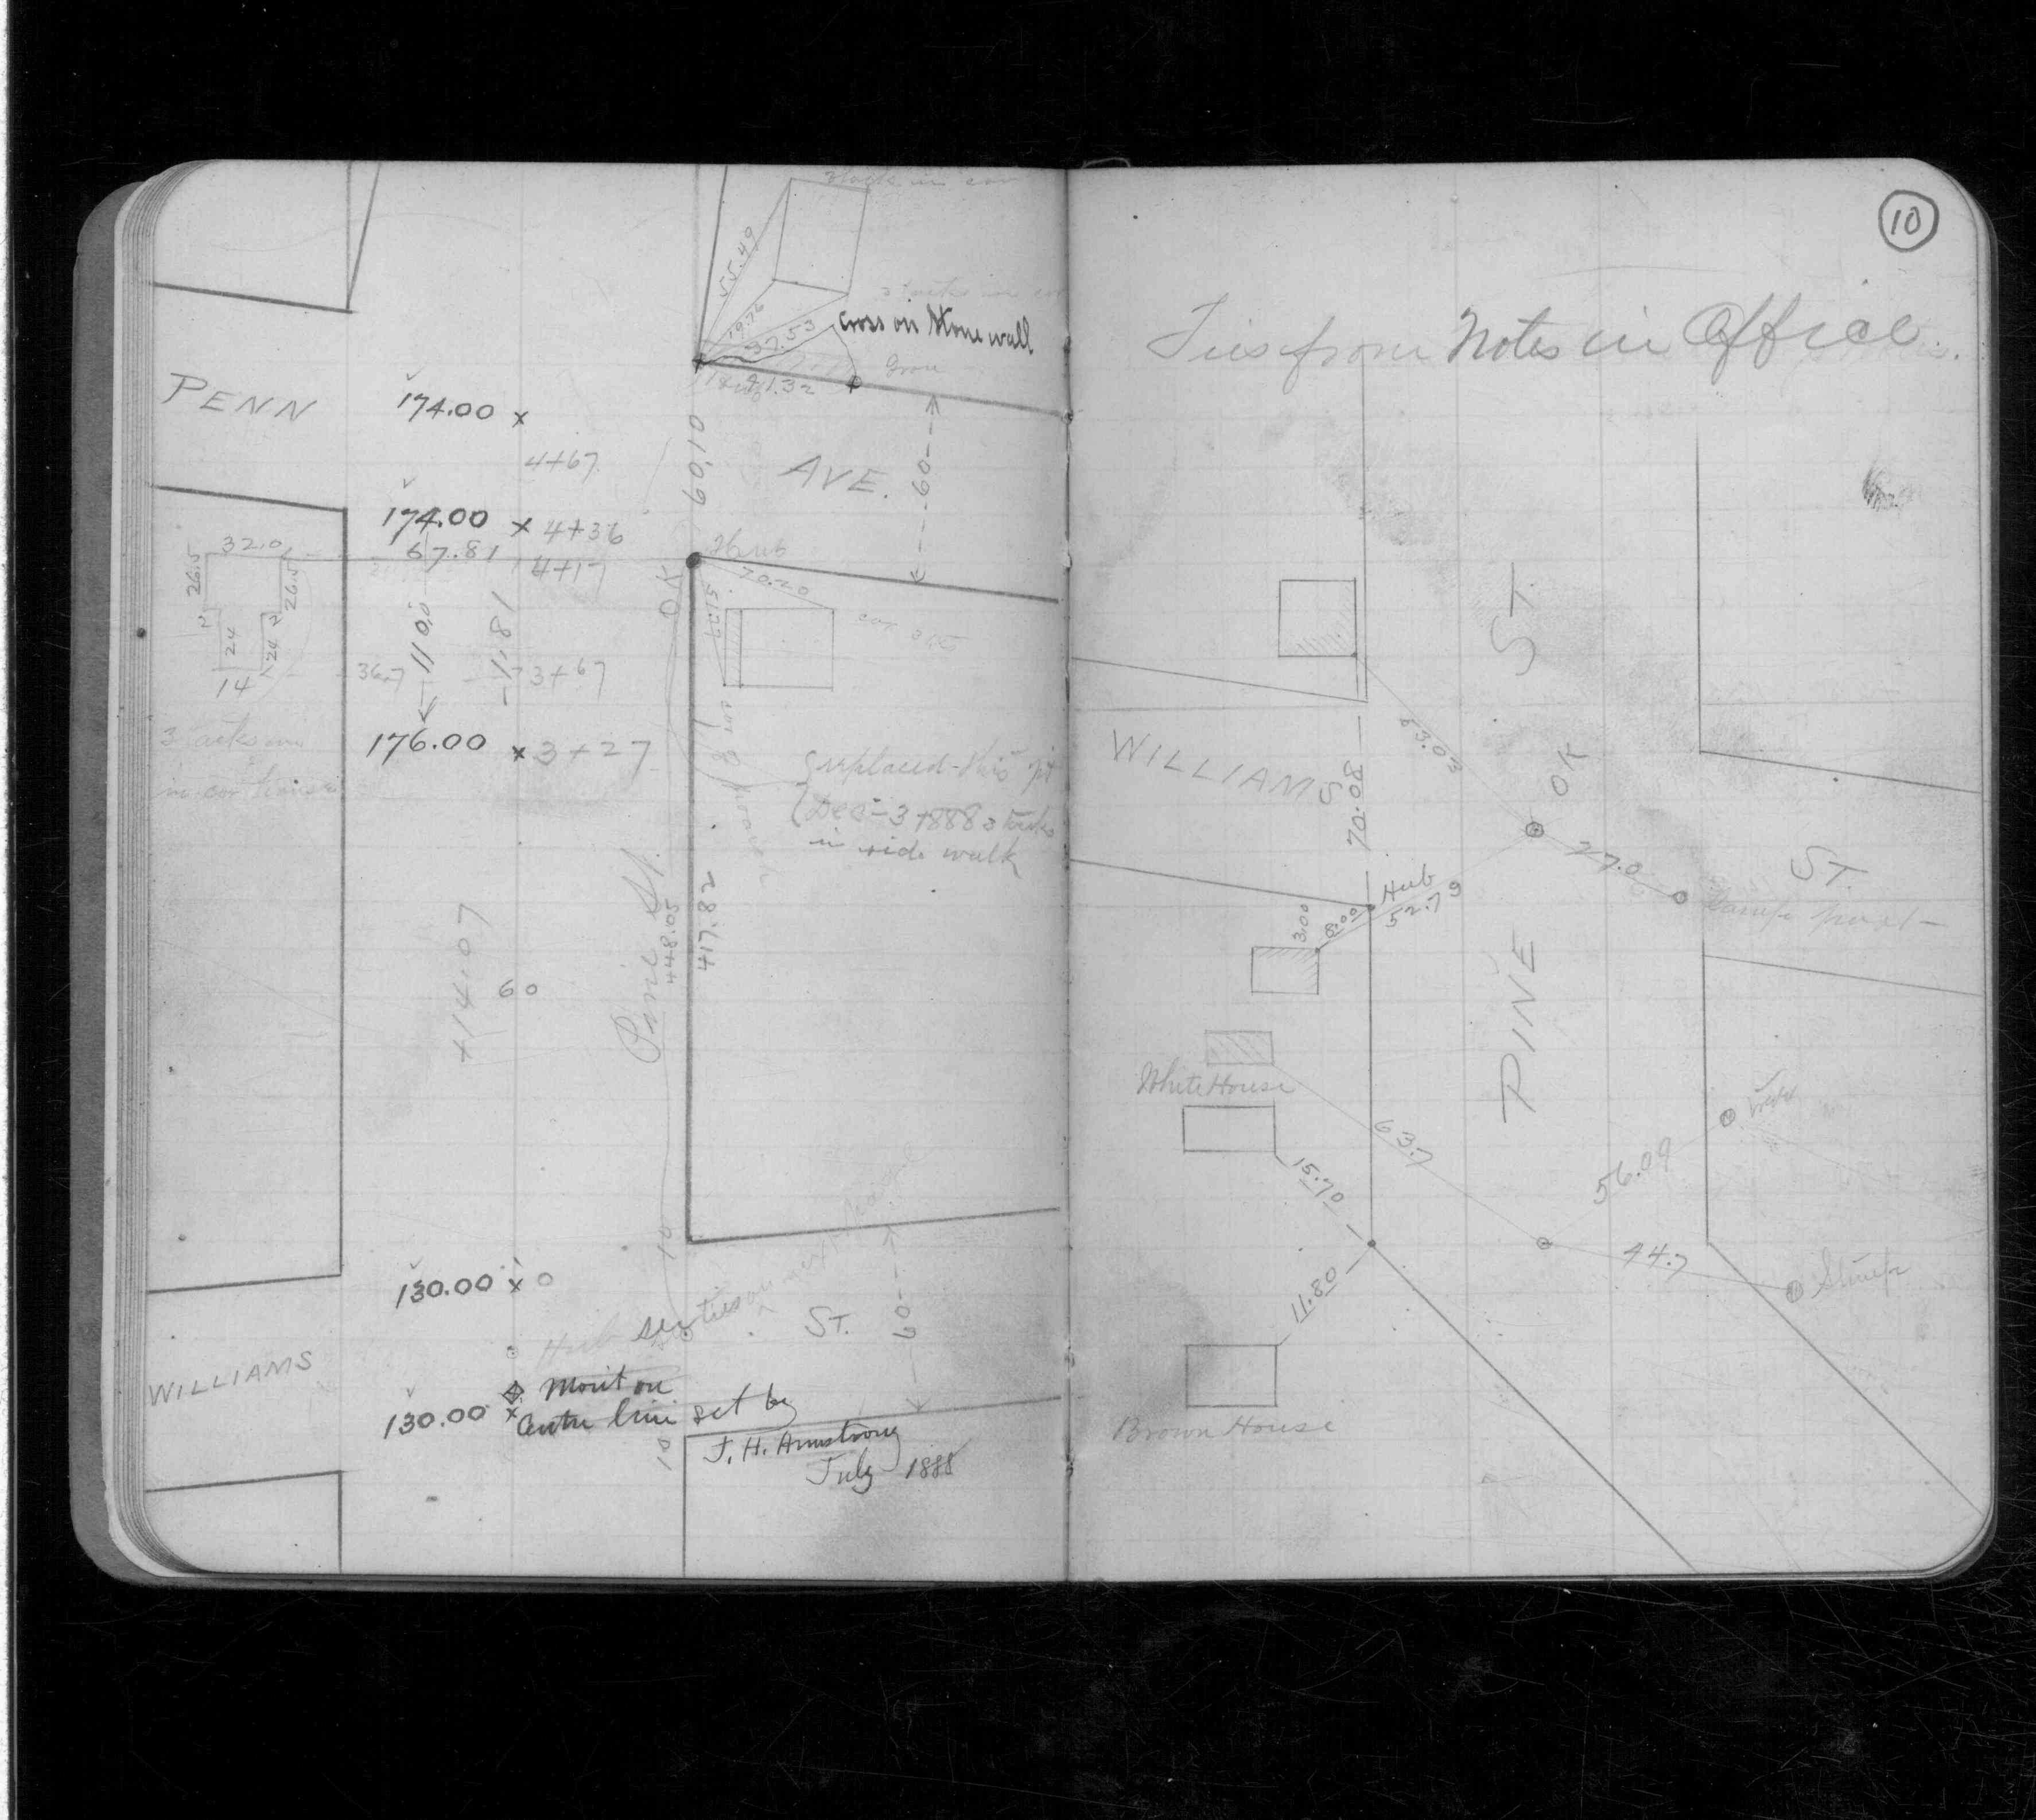 55.49
19.76
37.53
cross on Stone wall
41.32
PENN
174.00 x
4+67
60.10
AVE.
60
174.00 x 4+36
67.81
4+17
Hub
OK
70.20
15.67
32.0
26.5
26.5
2
2
24
24
14
110.0
-1.81
36.7
3+67
176.00 x 3+27
3 tacks in
replaced this pt
Dec 3 1888 3 tacks
in side walk
Pine St.
448.05
417.82
+14.07
60
10
130.00 x 0
Hub see ties on next page
ST.
60
WILLIAMS
Mon't on
130.00 x
Centre line set by
J. H. Armstrong
July 1888
10
10
Ties from Notes in Office
ST.
63.03
WILLIAMS
70.08
OK
27.0
ST.
Hub
52.79
3.00
8.00
PINE
White House
63.7
15.70
56.09
44.7
Stump
11.80
Brown House